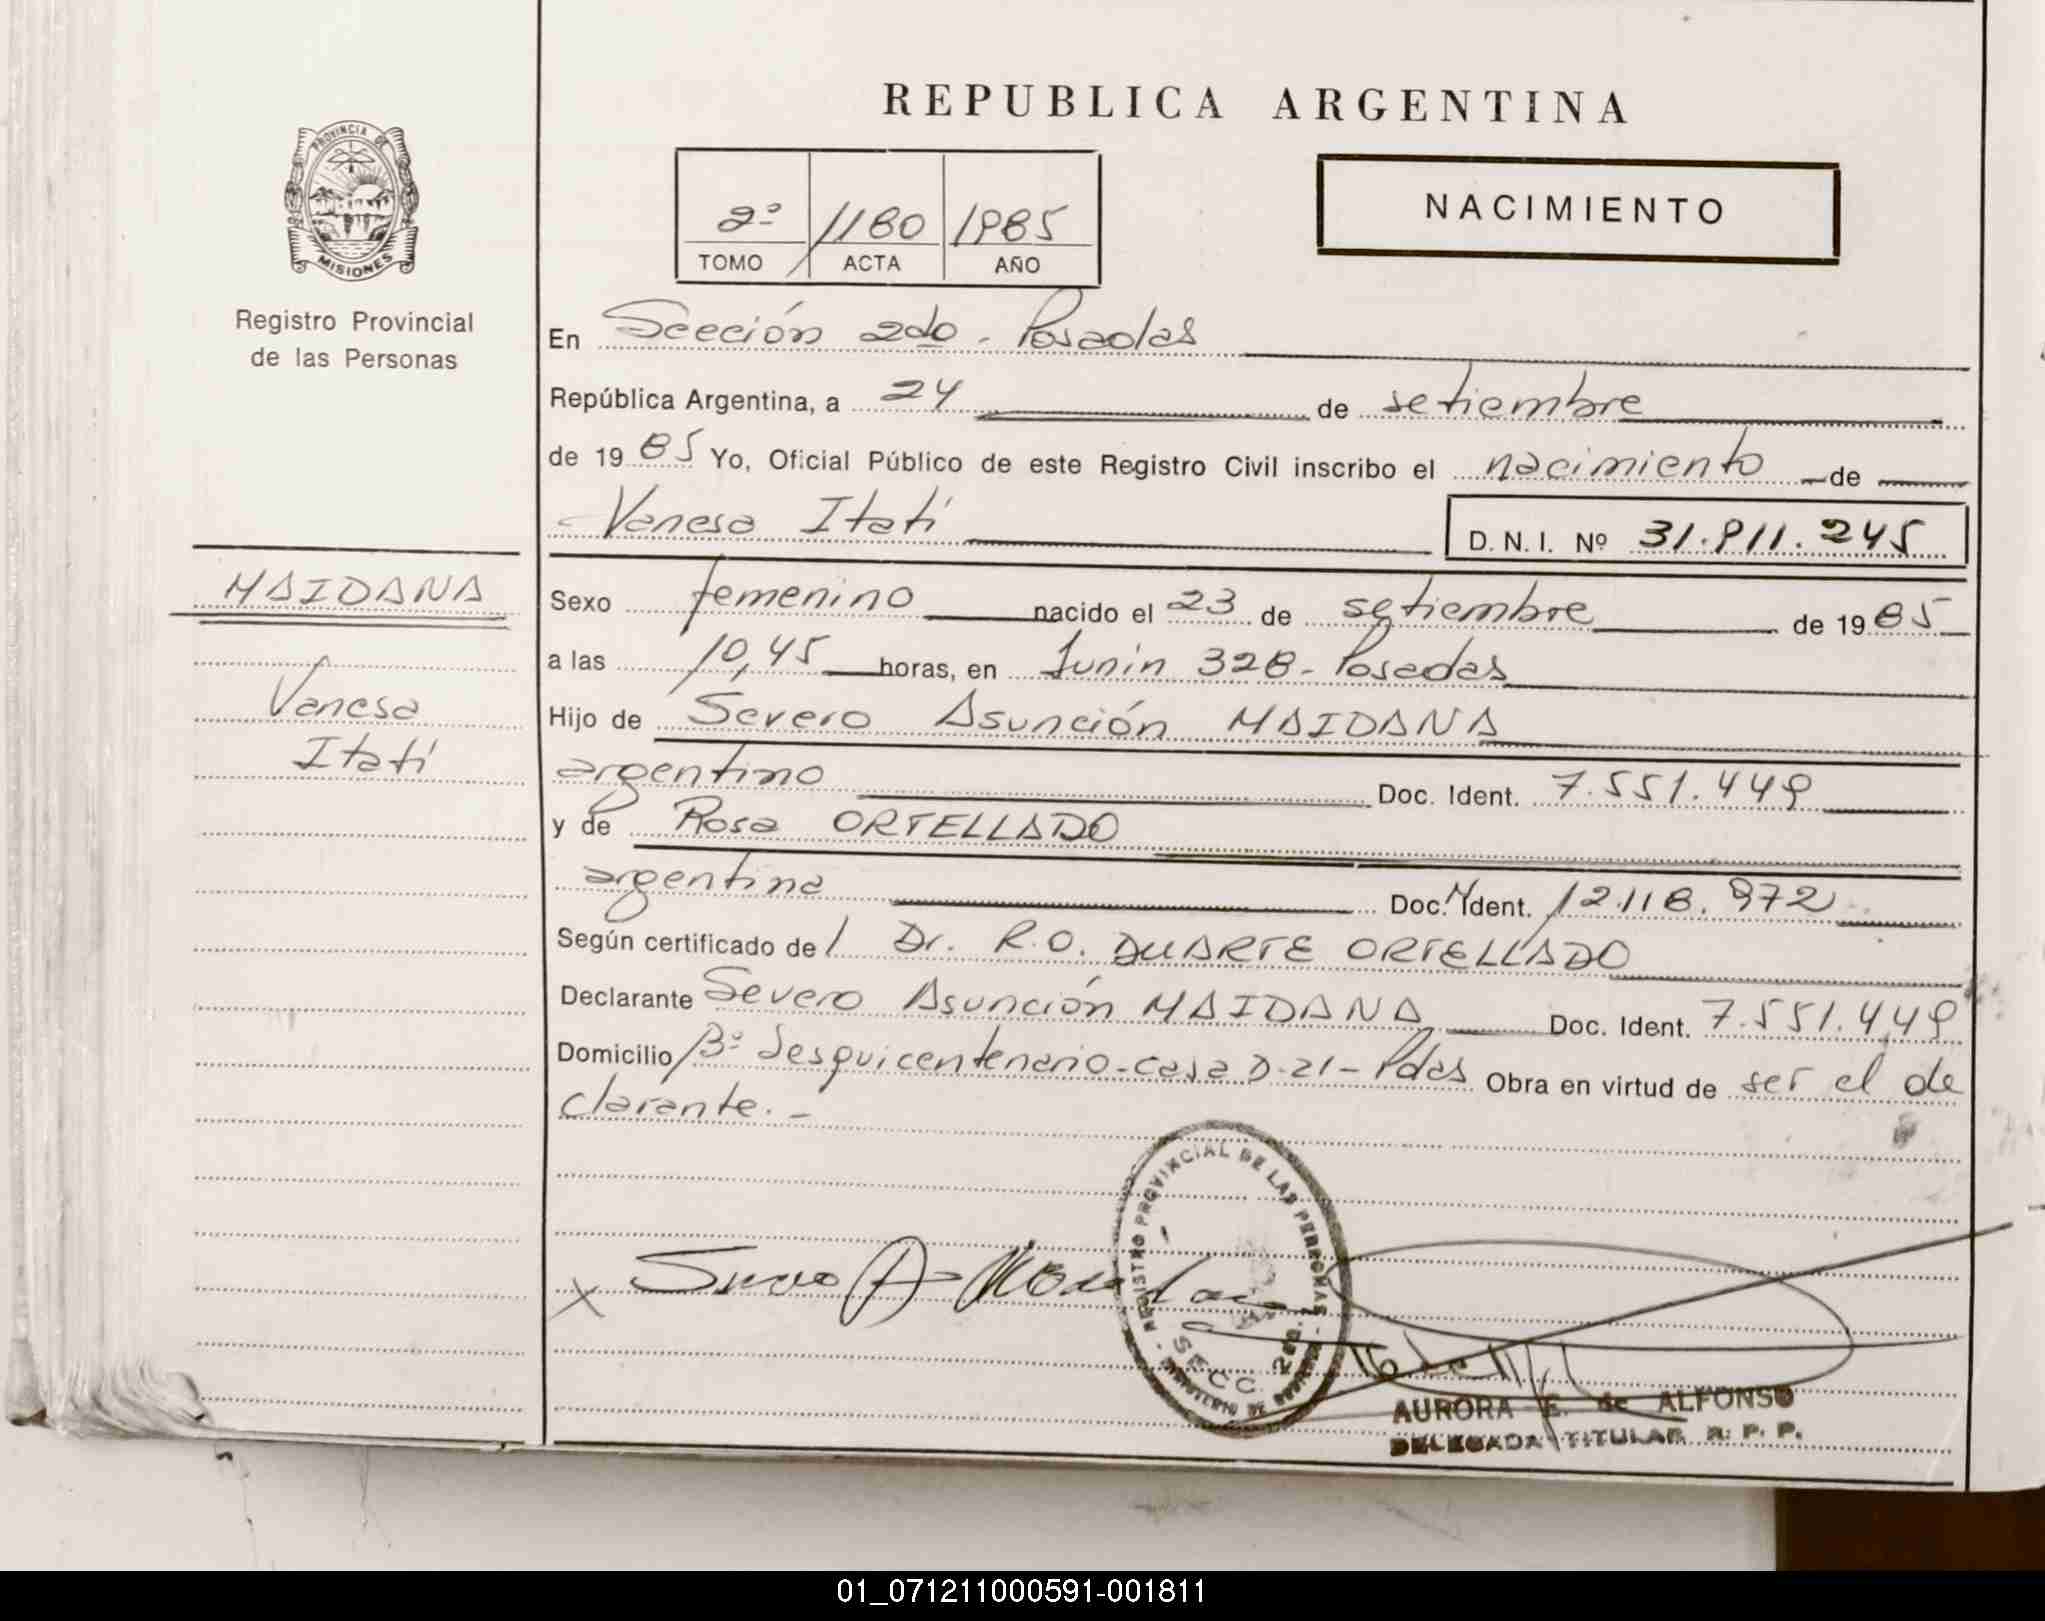 REPUBLICA ARGENTINA
PROVINCIA DE
MISIONES
Registro Provincial
de las Personas
2º 1180 1985
TOMO ACTA AÑO
NACIMIENTO
En Sección 2do - Posadas
República Argentina, a 24 de setiembre
de 1985 Yo, Oficial Público de este Registro Civil inscribo el nacimiento de
Vanesa Itatí D. N. I. Nº 31.911.245
MAIDANA
Vanesa
Itatí
Sexo femenino nacido el 23 de setiembre de 1985
a las 10,45 horas, en Junín 328 - Posadas
Hijo de Severo Asunción MAIDANA
argentino Doc. Ident. 7.551.449
y de Rosa ORTELLADO
argentina Doc. Ident. 12.118.972
Según certificado de Dr. R.O. DUARTE ORTELLADO
Declarante Severo Asunción MAIDANA Doc. Ident. 7.551.449
Domicilio Bº Sesquicentenario - casa D-21 - Pdas Obra en virtud de ser el de
clarante. -
REGISTRO PROVINCIAL DE LAS PERSONAS
SECC 2da.
MINISTERIO DE GOBIERNO
X Severo A Maidana
AURORA E. de ALFONSO
DELEGADA TITULAR R. P. P.
01_071211000591-001811